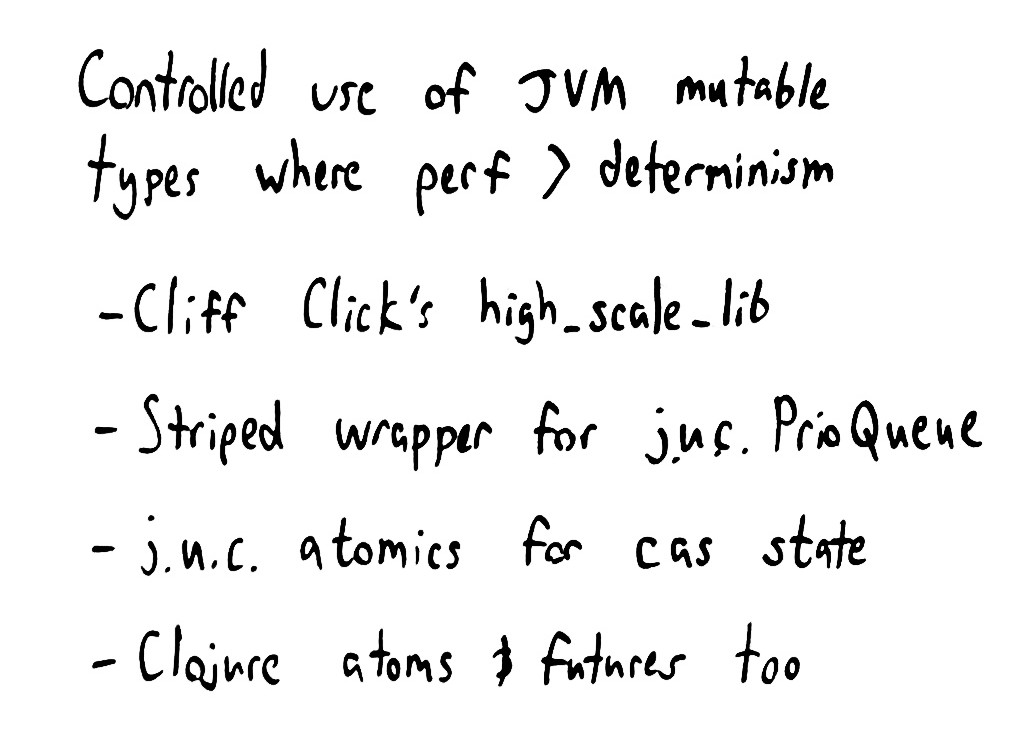 Controlled use of JVM mutable
types where perf > determinism
- Cliff Click's high_scale_lib
- Striped wrapper for j.u.c. PrioQueue
- j.u.c. atomics for cas state
- Clojure atoms & futures too